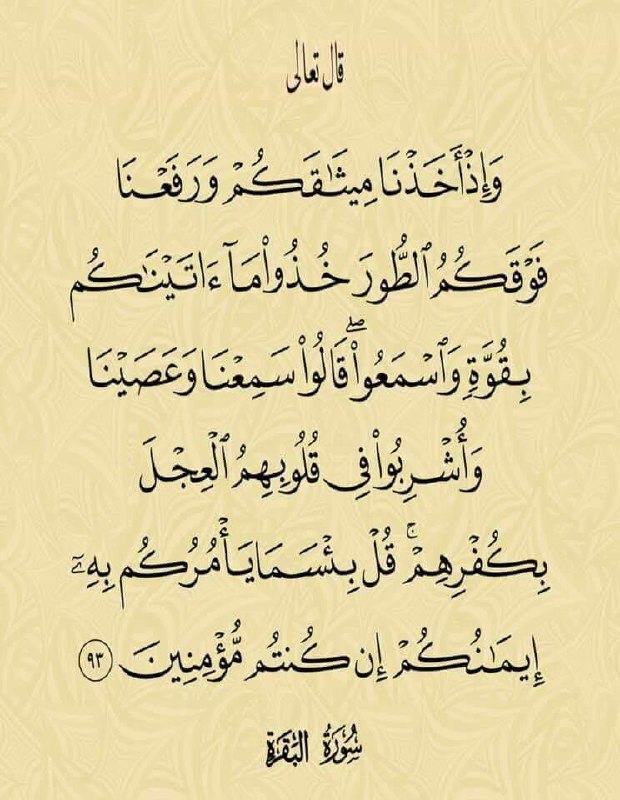 قال تعالى
وَإِذْ أَخَذْنَا مِيثَٰقَكُمْ وَرَفَعْنَا
فَوْقَكُمُ ٱلطُّورَ خُذُوا۟ مَآ ءَاتَيْنَٰكُم
بِقُوَّةٍ وَٱسْمَعُوا۟ ۖ قَالُوا۟ سَمِعْنَا وَعَصَيْنَا
وَأُشْرِبُوا۟ فِى قُلُوبِهِمُ ٱلْعِجْلَ
بِكُفْرِهِمْ ۚ قُلْ بِئْسَمَا يَأْمُرُكُم بِهِۦٓ
إِيمَٰنُكُمْ إِن كُنتُم مُّؤْمِنِينَ ٩٣
سُورَةُ البَقَرَةِ